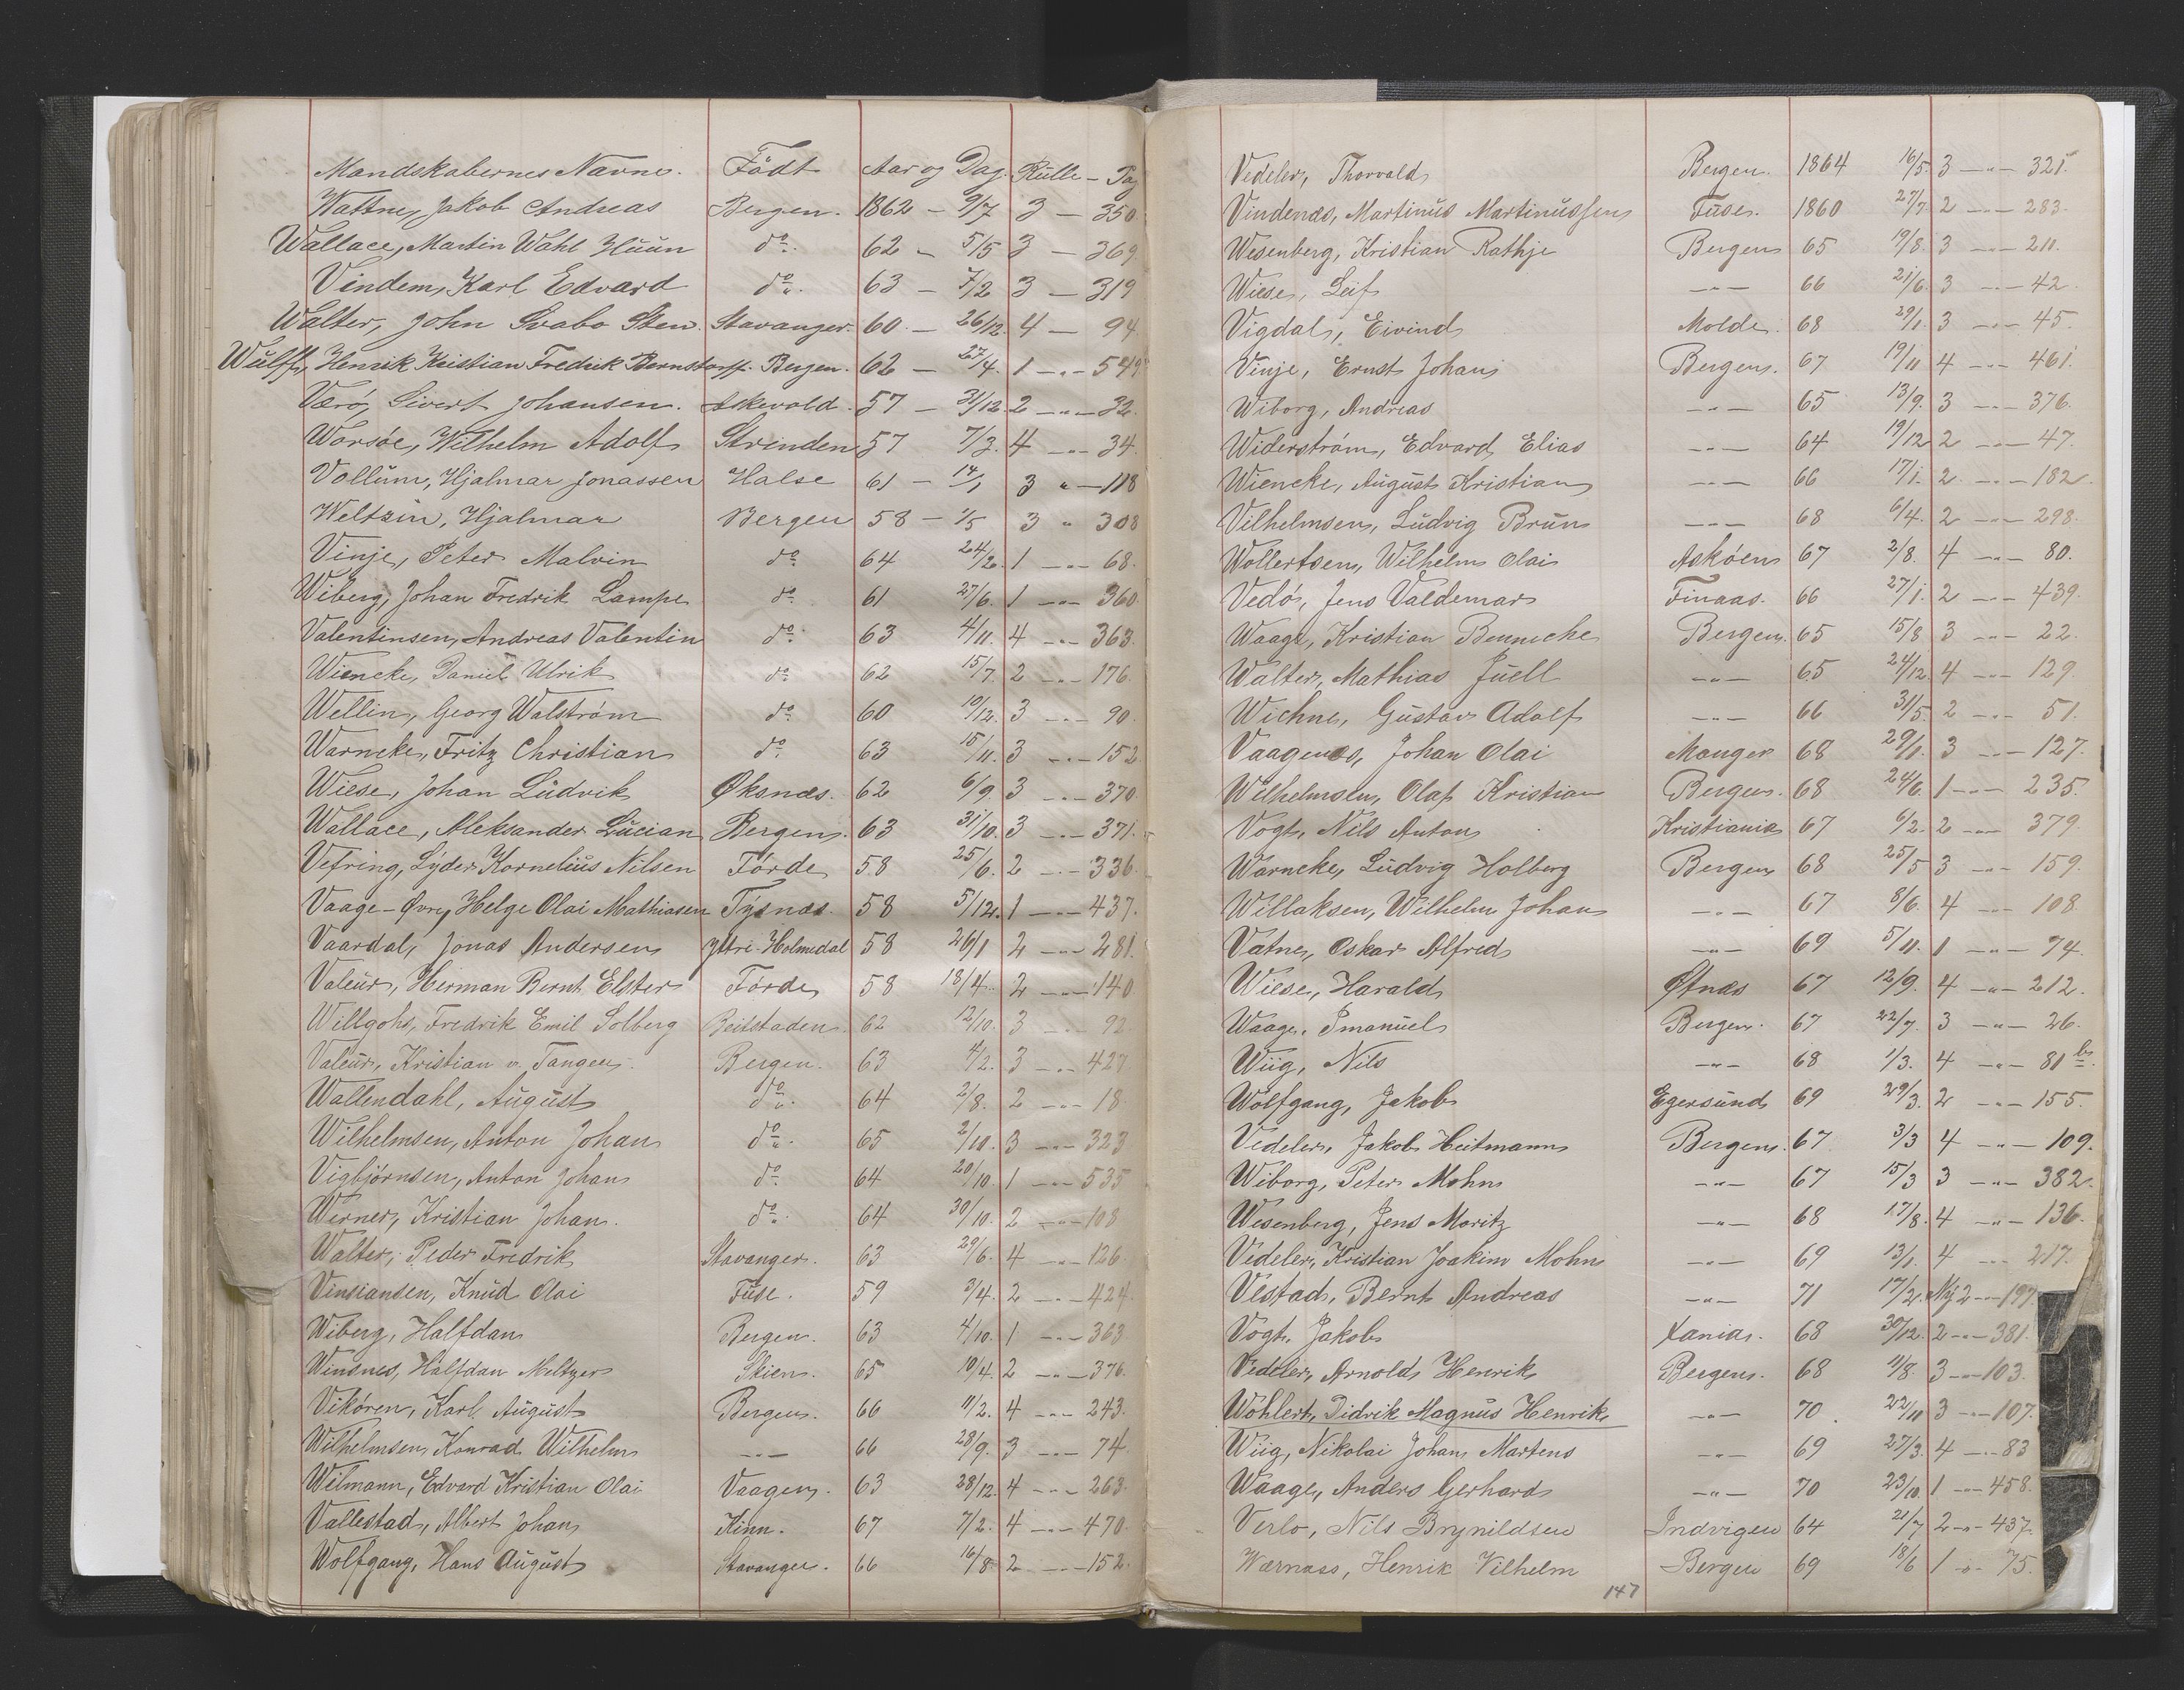 Mandskabernes Navne. Födt Aar og Dag. Rulle - Pag
Wattne, Jakob Andreas Bergen. 1862 - 9/7 3 - 350
Wallace, Martin Wahl Huun do. 62 - 5/5 3 - 369
Vindem, Karl Edvard do. 63 - 7/2 3 - 319
Walter, John Svabo Sten. Stavanger. 60 - 26/12. 4 - 94
Wulff, Henrik Kristian Fredrik Bernstorff. Bergen. 62 - 27/4. 1 -"- 549
Værö, Sivert Johansen. Askevold. 57 - 31/12. 2 -"- 32.
Worsöe, Wilhelm Adolf Strinden 57 7/3. 4 -"- 34.
Vollum, Hjalmar Jonassen Halse 61 - 14/1 3 " - 118
Weltzin, Hjalmar Bergen 58 - 1/5 3 " 308
Vinje, Peter Malvin do 64 24/2. 1 -"- 68.
Wiberg, Johan Fredrik Lampe do. 61 27/6. 1 -"- 360
Valentinsen, Andreas Valentin do. 63 4/11. 4 -"- 363.
Wiencke, Daniel Ulrik do. 62 15/7. 2 -"- 176.
Wellin, Georg Walström do. 60 10/12. 3 -"- 90.
Warncke, Fritz Christian do. 63 15/11. 3 -"- 152
Wiese, Johan Ludvik Øksnæs. 62 6/9 3 -"- 370.
Wallace, Aleksander Lucian Bergen. 63 31/10. 3 -"- 371.
Vefring, Lyder Kornelius Nilsen Förde 58 25/6. 2 -"- 336.
Vaage-Övre, Helge Olai Mathiasen Tysnæs. 58 5/12. 1 -"- 437.
Vaardal, Jonas Andersen Yttre-Holmedal 58 26/1 2 -"- 281.
Valeur, Herman Bernt Elster Förde 58 18/4. 2 -"- 140
Willgohs, Fredrik Emil Solberg Beitstaden. 62 12/10. 3 -"- 92
Valeur, Kristian v. Tangen. Bergen. 63 4/2. 3 -"- 427
Wallendahl, August do. 64 2/8. 2 -"- 18
Wilhelmsen, Anton Johan do. 65 2/10. 3 -"- 323
Vigbjörnsen, Anton Johan do. 64 20/10. 1 -"- 535
Werner, Kristian Johan. do. 64 30/10. 2 -"- 108
Walter, Peder Fredrik Stavanger. 63 29/6. 4 -"- 126.
Vinsiansen, Knud Olai Fuse. 59 3/4. 2 -"- 424.
Wiberg, Halfdan Bergen. 63 4/10. 1 -"- 363
Winsnes, Halfdan Meltzer Skien. 65 10/4. 2 -"- 376.
Vikören, Karl August Bergen. 66 11/2. 4 -"- 243.
Wilhelmsen, Konrad Wilhelm -"- 66 28/9. 3 -"- 74.
Wilmann, Edvard Kristian Olai Vaagen. 63 28/12. 4 -"- 263.
Vallestad, Albert Johan Kinn. 67 7/2. 4 -"- 470.
Wolfgang, Hans August Stavanger. 66 16/8 2 -"- 152.
Vedeler, Thorvald Bergen. 1864 16/5. 3 -"- 321.
Vindenæs, Martinus Martinussen Fuse. 1860 27/7. 2 -"- 283.
Wesenberg, Kristian Rathje Bergen 65 19/8. 3 -"- 211.
Wiese, Leif -"- 66 21/6. 3 -"- 42.
Vigdal, Eivind Molde. 68 29/1. 3 -"- 45.
Vinje, Ernst Johan Bergen. 67 19/11 4 -"- 461.
Wiborg, Andreas -"- 65 13/9. 3 -"- 376.
Widerström, Edvard Elias -"- 64 19/12 2 -"- 47.
Wiencke, August Kristian -"- 66 17/1. 2 -"- 182.
Vilhelmsen, Ludvig Brun -"- 68 6/4. 2 -"- 298.
Wollertsen, Wilhelm Olai Asköen 67 2/8. 4 -"- 80.
Vedö, Jens Valdemar Finaas. 66 27/1. 2 -"- 439.
Waage, Kristian Bennecke Bergen. 65 15/8 3 -"- 22.
Walter, Mathias Juell -"- 65 24/12. 4 -"- 129.
Wichne, Gustav Adolf -"- 66 31/5. 2 -"- 51.
Vaagenes, Johan Olai Manger 68 29/1. 3 -"- 127.
Wilhelmsen, Olaf Kristian Bergen. 68 24/6. 1 -"- 235.
Vogt, Nils Anton Kristiania 67 6/2. 2 -"- 379.
Warncke, Ludvig Holberg Bergen 68 25/5 3 -"- 159.
Willaksen, Wilhelm Johan -"- 67 8/6. 4 -"- 108
Vatne, Oskar Alfred -"- 69 5/11. 1 -"- 74.
Wiese, Harald Øtnæs 67 12/9. 4 -"- 212.
Waage, Imanuel Bergen. 67 22/7. 3 -"- 26.
Wiig, Nils -"- 68 1/3. 4 -"- 81 b.
Wolfgang, Jakob Egersund 69 29/3. 2 -"- 155.
Vedeler, Jakob Heitmann Bergen. 67 3/3 4 -"- 109.
Wiborg, Peter Mohn -"- 67 15/3 3 -"- 382.
Wesenberg, Jens Moritz -"- 68 17/8. 4 -"- 136.
Vedeler, Kristian Joakim Mohn -"- 69 13/1. 4 -"- 217.
Vestad, Bernt Andreas -"- 71 17/2. Ny 2 -"- 197.
Vogt, Jakob Xania. 68 30/12. 2 -"- 381.
Vedeler, Arnold Henrik Bergen. 68 11/8. 3 -"- 103.
Wohlert, Didrik Magnus Henrik, -"- 70. 22/11 3 -"- 107.
Wiig, Nikolai Johan Martens -"- 69 27/3. 4 -"- 83
Waage, Anders Gerhard -"- 70 23/10. 1 -"- 458.
Verlo, Nils Brynildsen Indvigen 64 21/7 2 -"- 437.
Wærnass, Henrik Vilhelm Bergen 69 18/6 1 -"- 75.
147